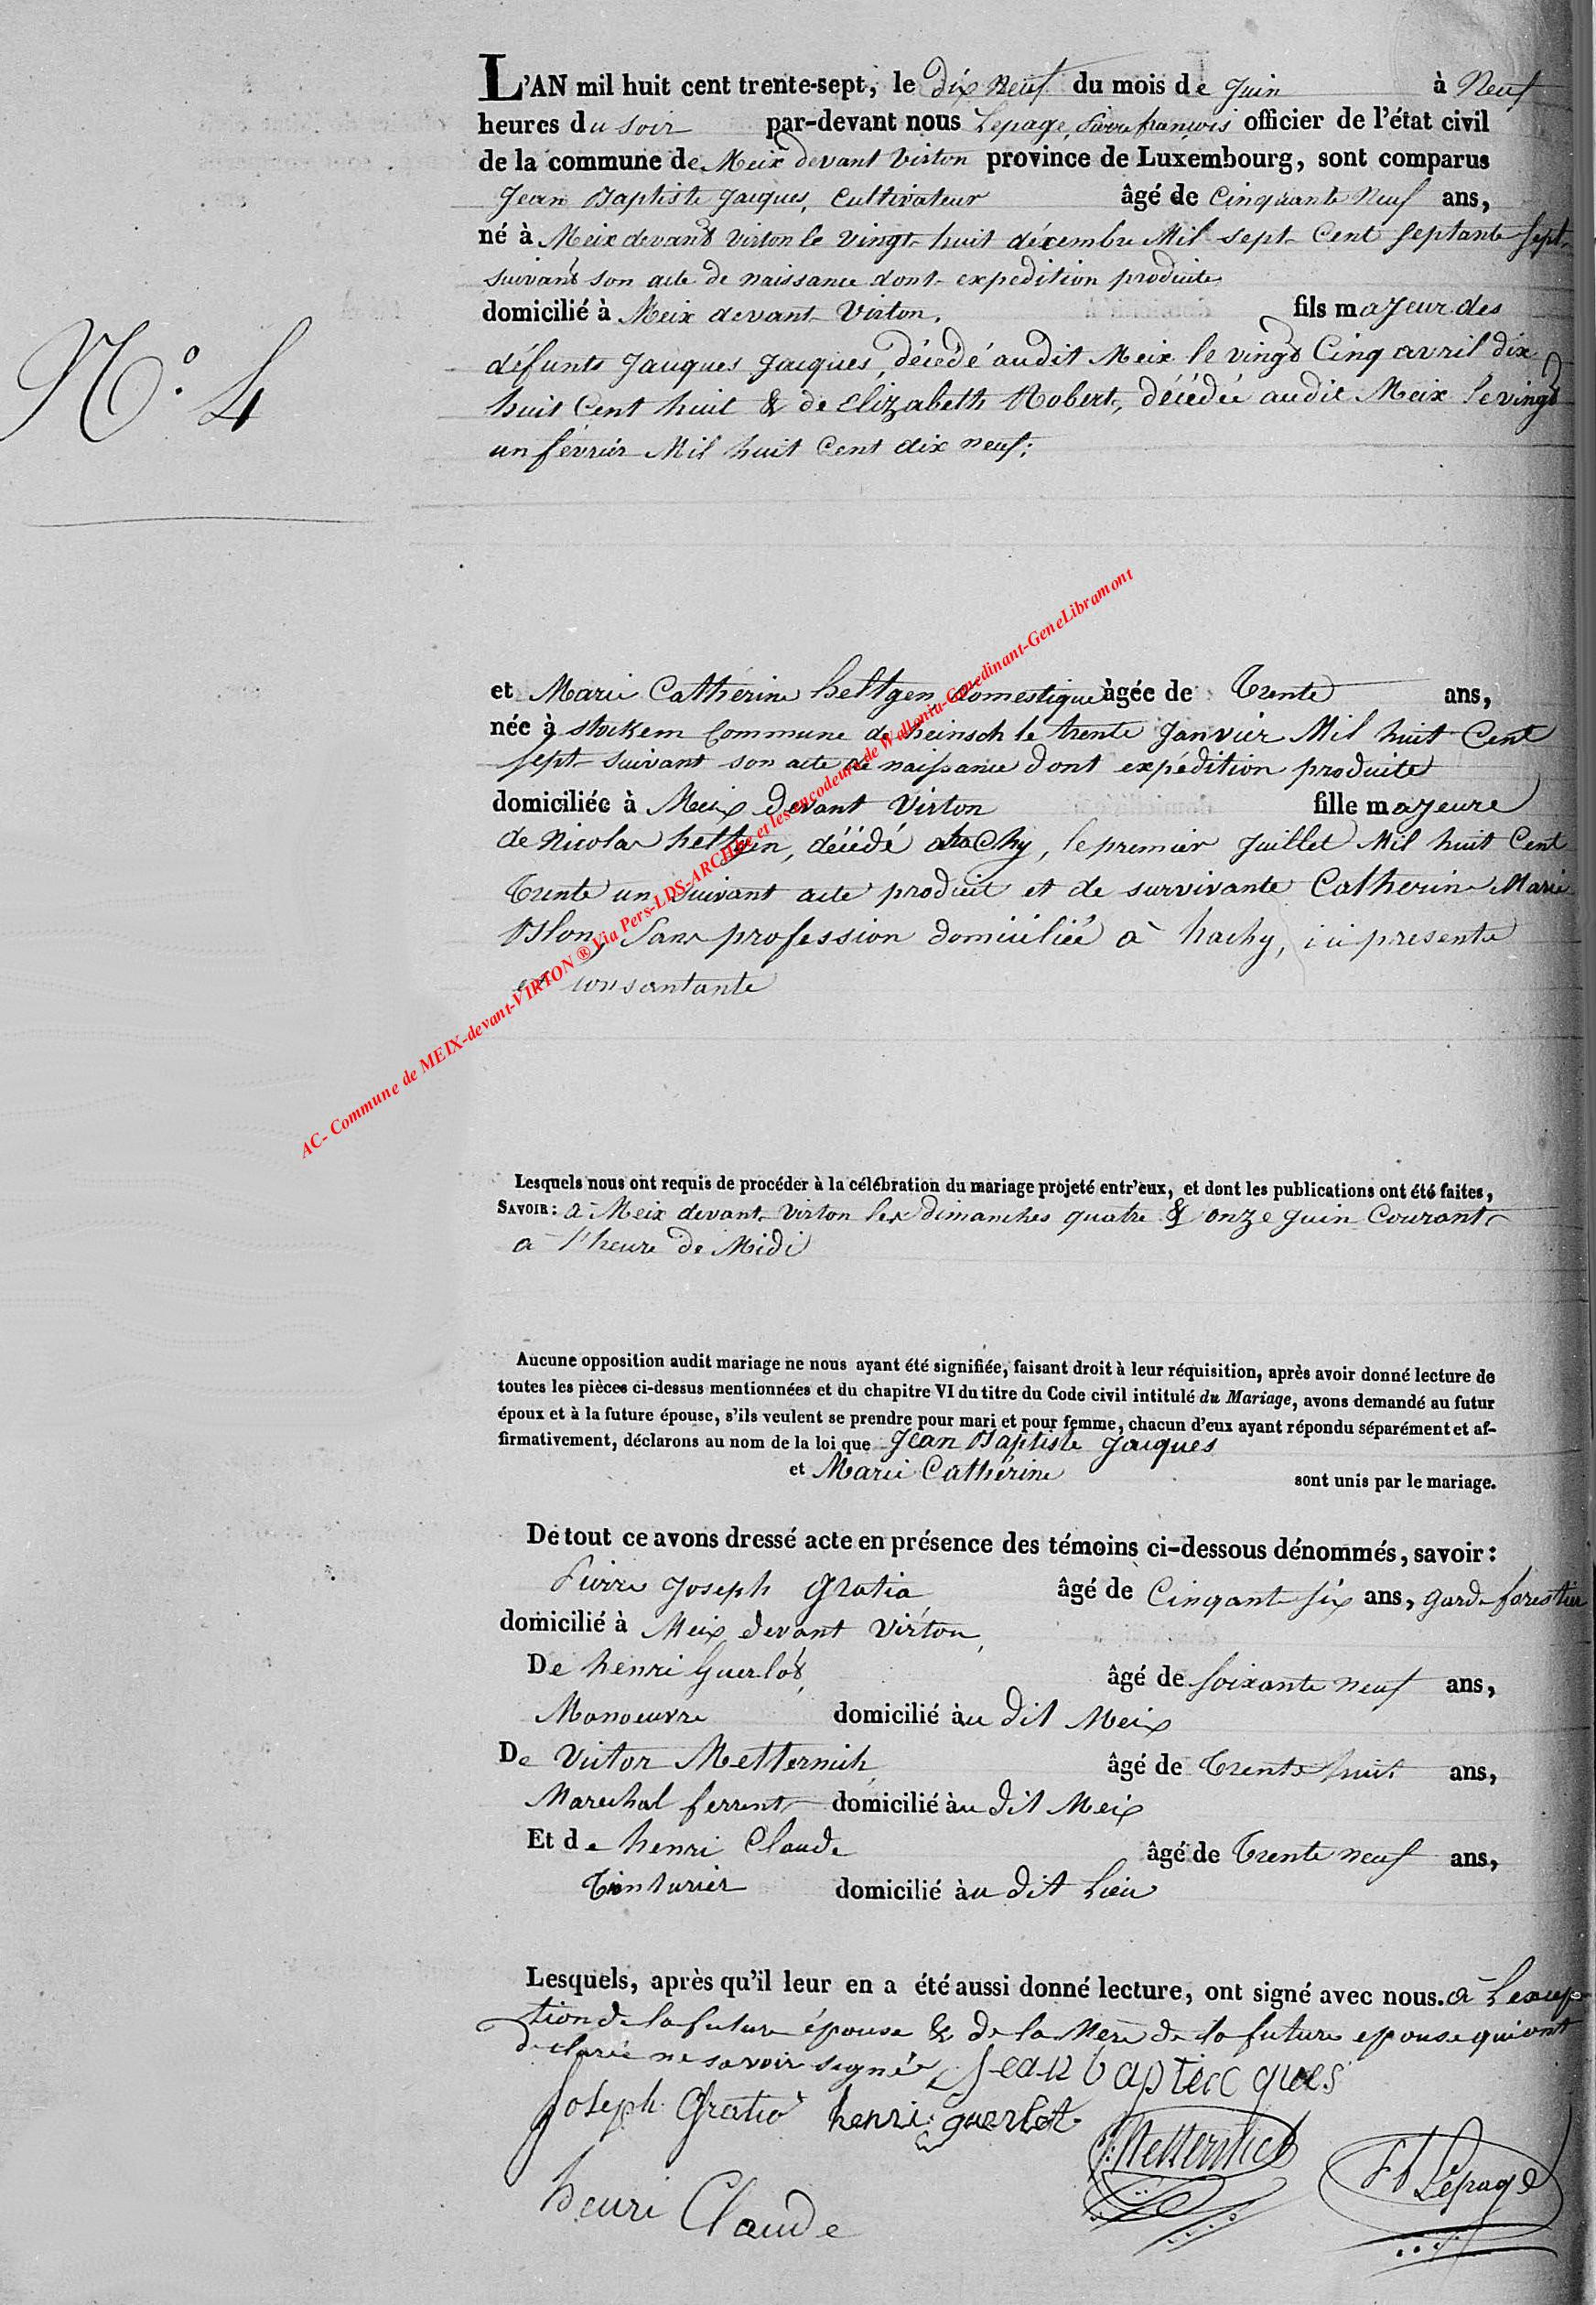 L'AN mil huit cent trente-sept, le dix neuf du mois de Juin à Neuf
heures du soir par-devant nous Lepage, Pierre françois officier de l'état civil
de la commune de Meix devant Virton province de Luxembourg, sont comparus
Jean Baptiste Jacques, Cultivateur âgé de Cinquante Neuf ans,
né à Meix devant Virton le vingt huit décembre Mil sept Cent septante sept
suivant son acte de naissance dont expedition produite,
domicilié à Meix devant Virton, fils majeur des
défunts Jacques Jacques, décédé audit Meix le vingt Cinq avril dix
huit Cent huit & de Elizabeth Robert, décédée audit Meix le vingt
un février Mil huit Cent dix neuf;
N.° 4
et Marie Catherine heltgen, domestique âgée de Trente ans,
née à stokem Commune de heinsch le trente Janvier Mil huit Cent
sept suivant son acte de naissance dont expédition produite
domiciliée à Meix devant Virton fille majeure
de Nicolas heltgen, décédé à hachy, le premier Juillet Mil huit Cent
Trente un suivant acte produit et de survivante Catherine Marie
Sans profession domiciliée à hachy, ici presente
et consantante
AC- Commune de MEIX-devant-VIRTON ® Via Pers-LDS-ARCHbe et les encodeurs de Wallonia-Genedinant-GeneLibramont
Lesquels nous ont requis de procéder à la célébration du mariage projeté entr'eux, et dont les publications ont été faites,
SAVOIR: à Meix devant Virton les dimanches quatre & onze Juin Courant
à l'heure de Midi
Aucune opposition audit mariage ne nous ayant été signifiée, faisant droit à leur réquisition, après avoir donné lecture de
toutes les pièces ci-dessus mentionnées et du chapitre VI du titre du Code civil intitulé du Mariage, avons demandé au futur
époux et à la future épouse, s'ils veulent se prendre pour mari et pour femme, chacun d'eux ayant répondu séparément et af-
firmativement, déclarons au nom de la loi que Jean Baptiste Jacques
et Marie Catherine sont unis par le mariage.
De tout ce avons dressé acte en présence des témoins ci-dessous dénommés, savoir:
Pierre Joseph Gratia âgé de Cinqante six ans, garde forestier
domicilié à Meix devant Virton,
De henri Guerlot, âgé de soixante neuf ans,
Manoeuvre domicilié au dit Meix
De Victor Metternich, âgé de Trente huit ans,
Marechal ferrent domicilié au dit Meix
Et de henri Claude âgé de Trente neuf ans,
Tinturier domicilié au dit Lieu
Lesquels, après qu'il leur en a été aussi donné lecture, ont signé avec nous. à L'excep-
tion de la future épouse & de la Mère de la future epouse qui ont
declaré ne savoir signé, Jean baptic ques
Joseph Gratia henri guerlot
Metternich
F Lepage
henri Claude